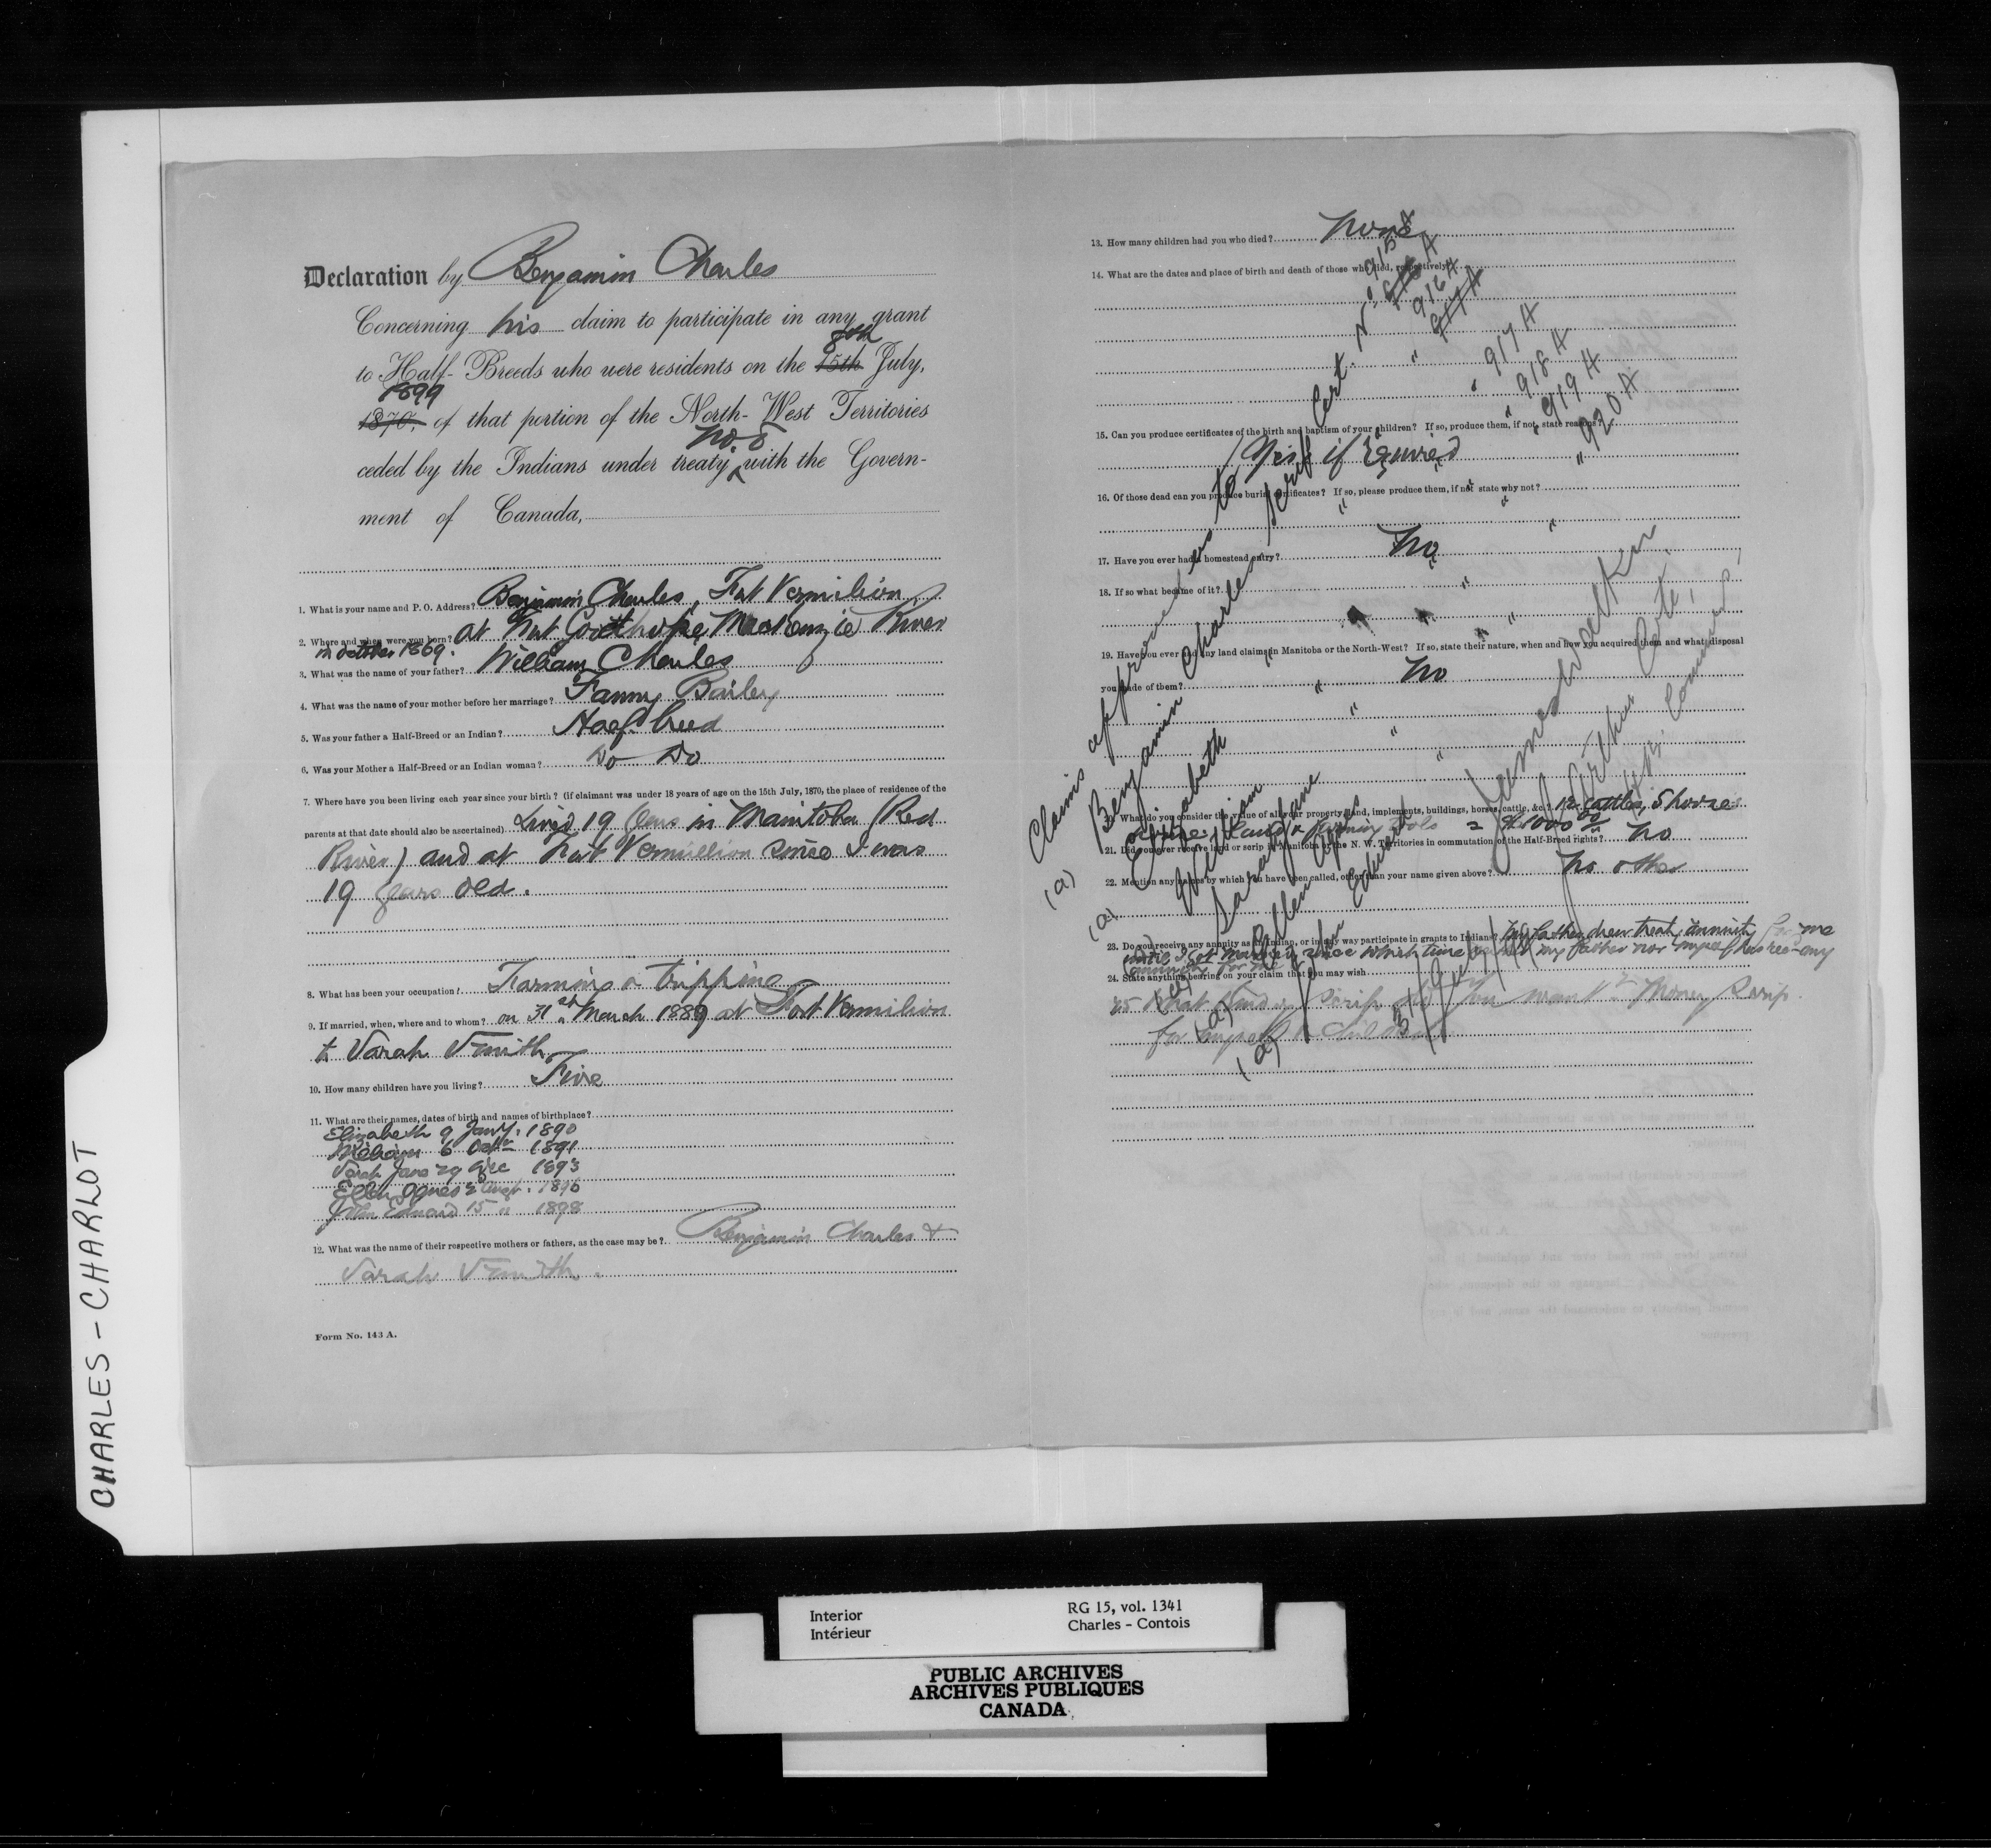 CHARLES - CHARLOT
Declaration by Benjamin Charles
Concerning his claim to participate in any grant
8th
to Half-Breeds who were residents on the 15th July,
1899
1870, of that portion of the North-West Territories
No. 8
ceded by the Indians under treaty with the Govern-
ment of Canada,
1. What is your name and P. O. Address? Benjamin Charles, Fort Vermilion
2. Where and when were you born? at Fort Goodhope, MacKenzie River
in October 1869.
3. What was the name of your father? William Charles
4. What was the name of your mother before her marriage? Fanny Bailey
5. Was your father a Half-Breed or an Indian? Half-breed
6. Was your Mother a Half-Breed or an Indian woman? Do Do
7. Where have you been living each year since your birth? (if claimant was under 18 years of age on the 15th July, 1870, the place of residence of the
parents at that date should also be ascertained) Lived 19 years in Manitoba (Red
River) and at Fort Vermillion since I was
19 years old.
8. What has been your occupation? Farming & tripping
9. If married, when, where and to whom? on 31st March 1889 at Fort Vermilion
to Sarah Smith
10. How many children have you living? Five
11. What are their names, dates of birth and names of birthplace?
Elizabeth 9 Jany. 1890
William 6 Octr 1891
Sarah Jane 29 Dec 1893
Ellen Agnes 2 Augt. 1896
John Edward 15 " 1898
12. What was the name of their respective mothers or fathers, as the case may be? Benjamin Charles &
Sarah Smith.
Form No. 143 A.
13. How many children had you who died? None
14. What are the dates and place of birth and death of those who died, respectively?
15. Can you produce certificates of the birth and baptism of your children? If so, produce them, if not, state reasons?
Yes if required
16. Of those dead can you produce burial certificates? If so, please produce them, if not state why not?
17. Have you ever had a homestead entry? No
18. If so what became of it?
19. Have you ever had any land claims in Manitoba or the North-West? If so, state their nature, when and how you acquired them and what disposal
you made of them? No
20. What do you consider the value of all your property, land, implements, buildings, horses, cattle, &c.? 12 cattles, 5 horses
land & farming tools = $1000.00
21. Did you ever receive land or scrip in Manitoba or the N. W. Territories in commutation of the Half-Breed rights? No
22. Mention any names by which you have been called, other than your name given above? No other
23. Do you receive any annuity as an Indian, or in any way participate in grants to Indians? My father drew treaty annuity for me
until I got married, since which time neither my father nor myself has rec- any
annuity for me
24. State anything bearing on your claim that you may wish
25 What kind of Scrip do you want? Money Scrip
for myself & children
Claims approved as to
Scrip Cert. No. 915 A
(a) Benjamin Charles
(a) Elizabeth " " 916 A
William " " 917 A
Sarah Jane " " 918 A
(a) Ellen Agnes " " 919 A
(a) John Edward " " 920 A
James Walker
J. Arthur Coté,
Commrs.
Interior
Intérieur
RG 15, vol. 1341
Charles - Contois
PUBLIC ARCHIVES
ARCHIVES PUBLIQUES
CANADA